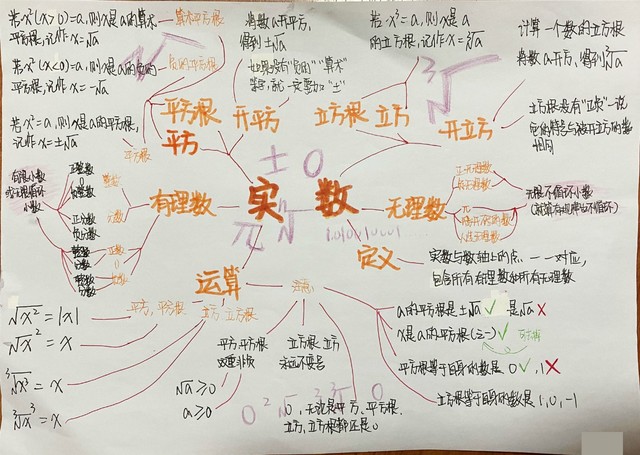 若x²(x>0)=a,则x是a的算术
平方根,记作x=√a
算术平方根
若x²(x<0)=a,则x是a的负的
平方根,记作x=-√a
负的平方根
若x²=a,则x是a的平方根,
记作x=±√a
平方根
将数a开平方,
得到±√a
如果没有"负的""算术"
一定要加"±"
若x²=a,则x是a
的立方根,记作x=³√a
计算一个数的立方根
将数a开方,得到³√a
立方根没有"正负"一说
它的符号与被开方的数
相同
平方根 开平方
平方
立方根 立方
开立方
±0
实数
π √
1.010010001
有理数
整数
正整数
0
负整数
分数
正分数
负分数
有限小数
或无限循环
小数
正数
0
负数
无理数
正无理数
负无理数
π
开不尽的数
无限不循环小数
定义
实数与数轴上的点一一对应,
包含所有有理数和所有无理数
运算
平方,平方根
立方,立方根
√x²=|x|
√x²=x
³√x³=x
³√x³=x
平方 平方根
双重非负
√a≥0
a≥0
立方根 立方
永远不要忘
0,无论是平方、平方根、
立方,立方根都还是0
a的平方根是±√a✓ 是√a✗
x是a的平方根(之一)✓
平方根等于自身的数是0✓,1✗
立方根等于自身的数是1,0,-1